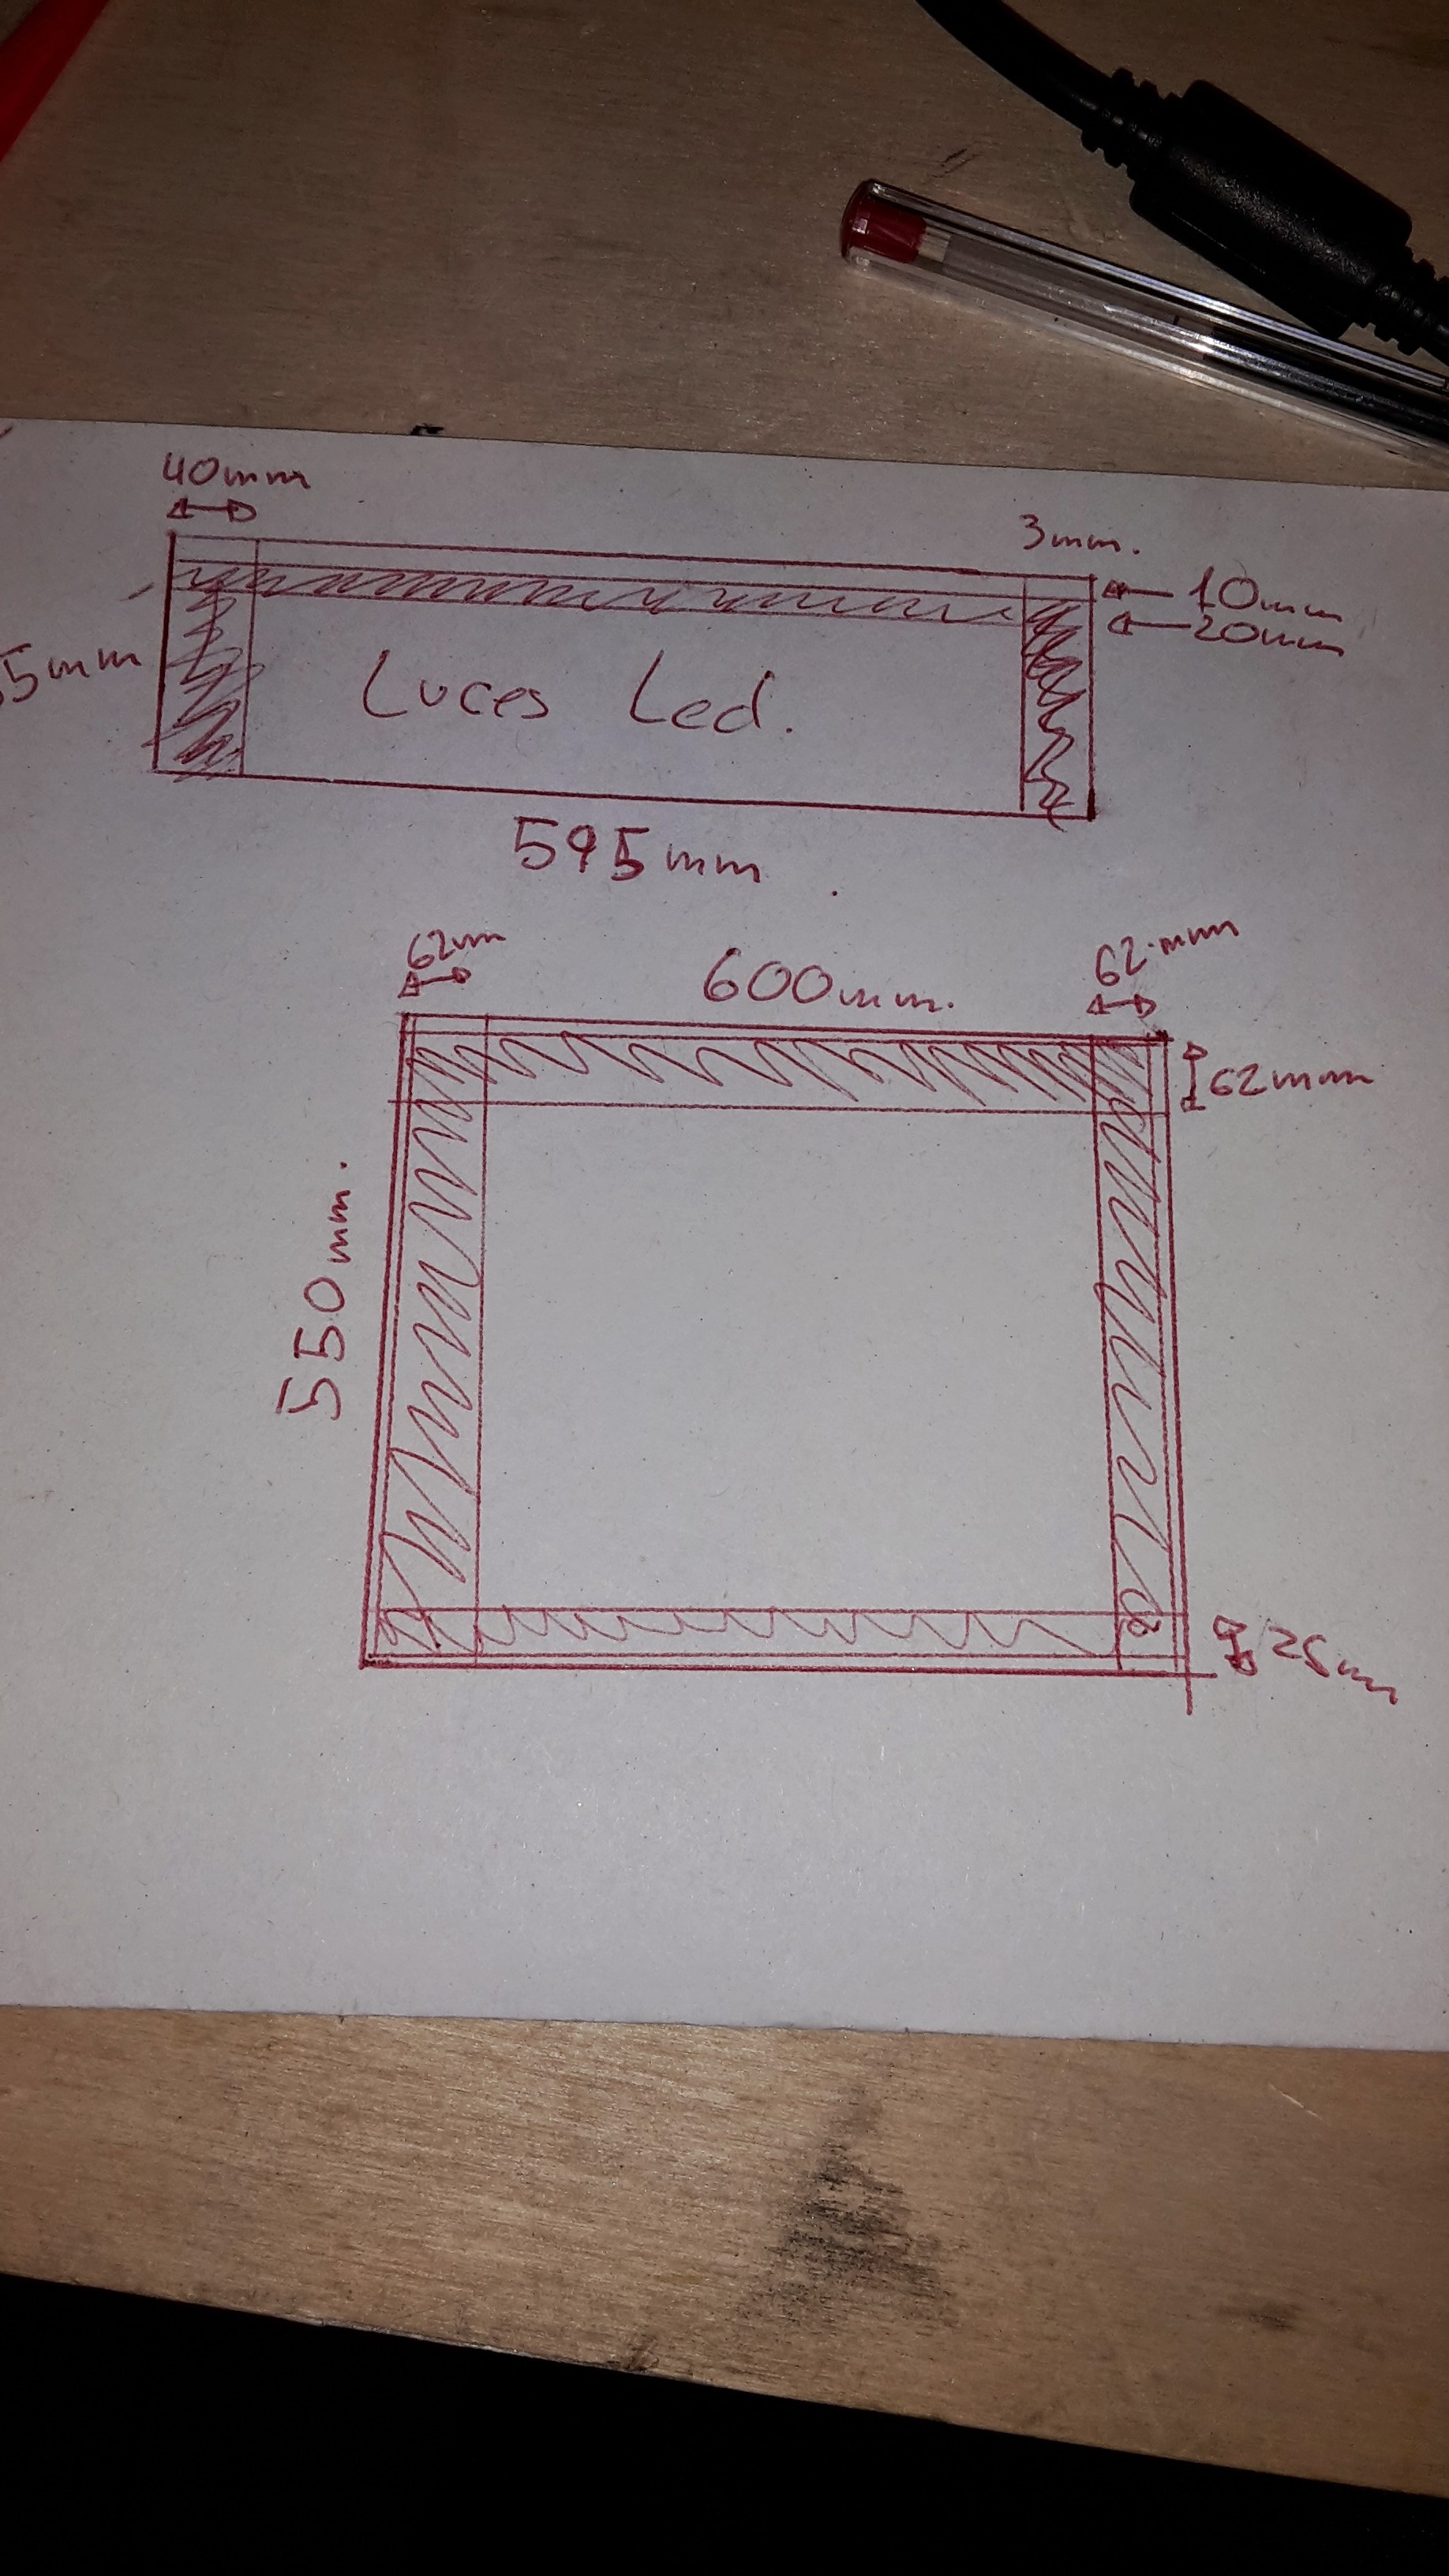 40mm
3mm.
10mm
20mm
5mm
Luces Led.
595mm
62mm
600mm.
62mm
62mm
550mm.
25mm